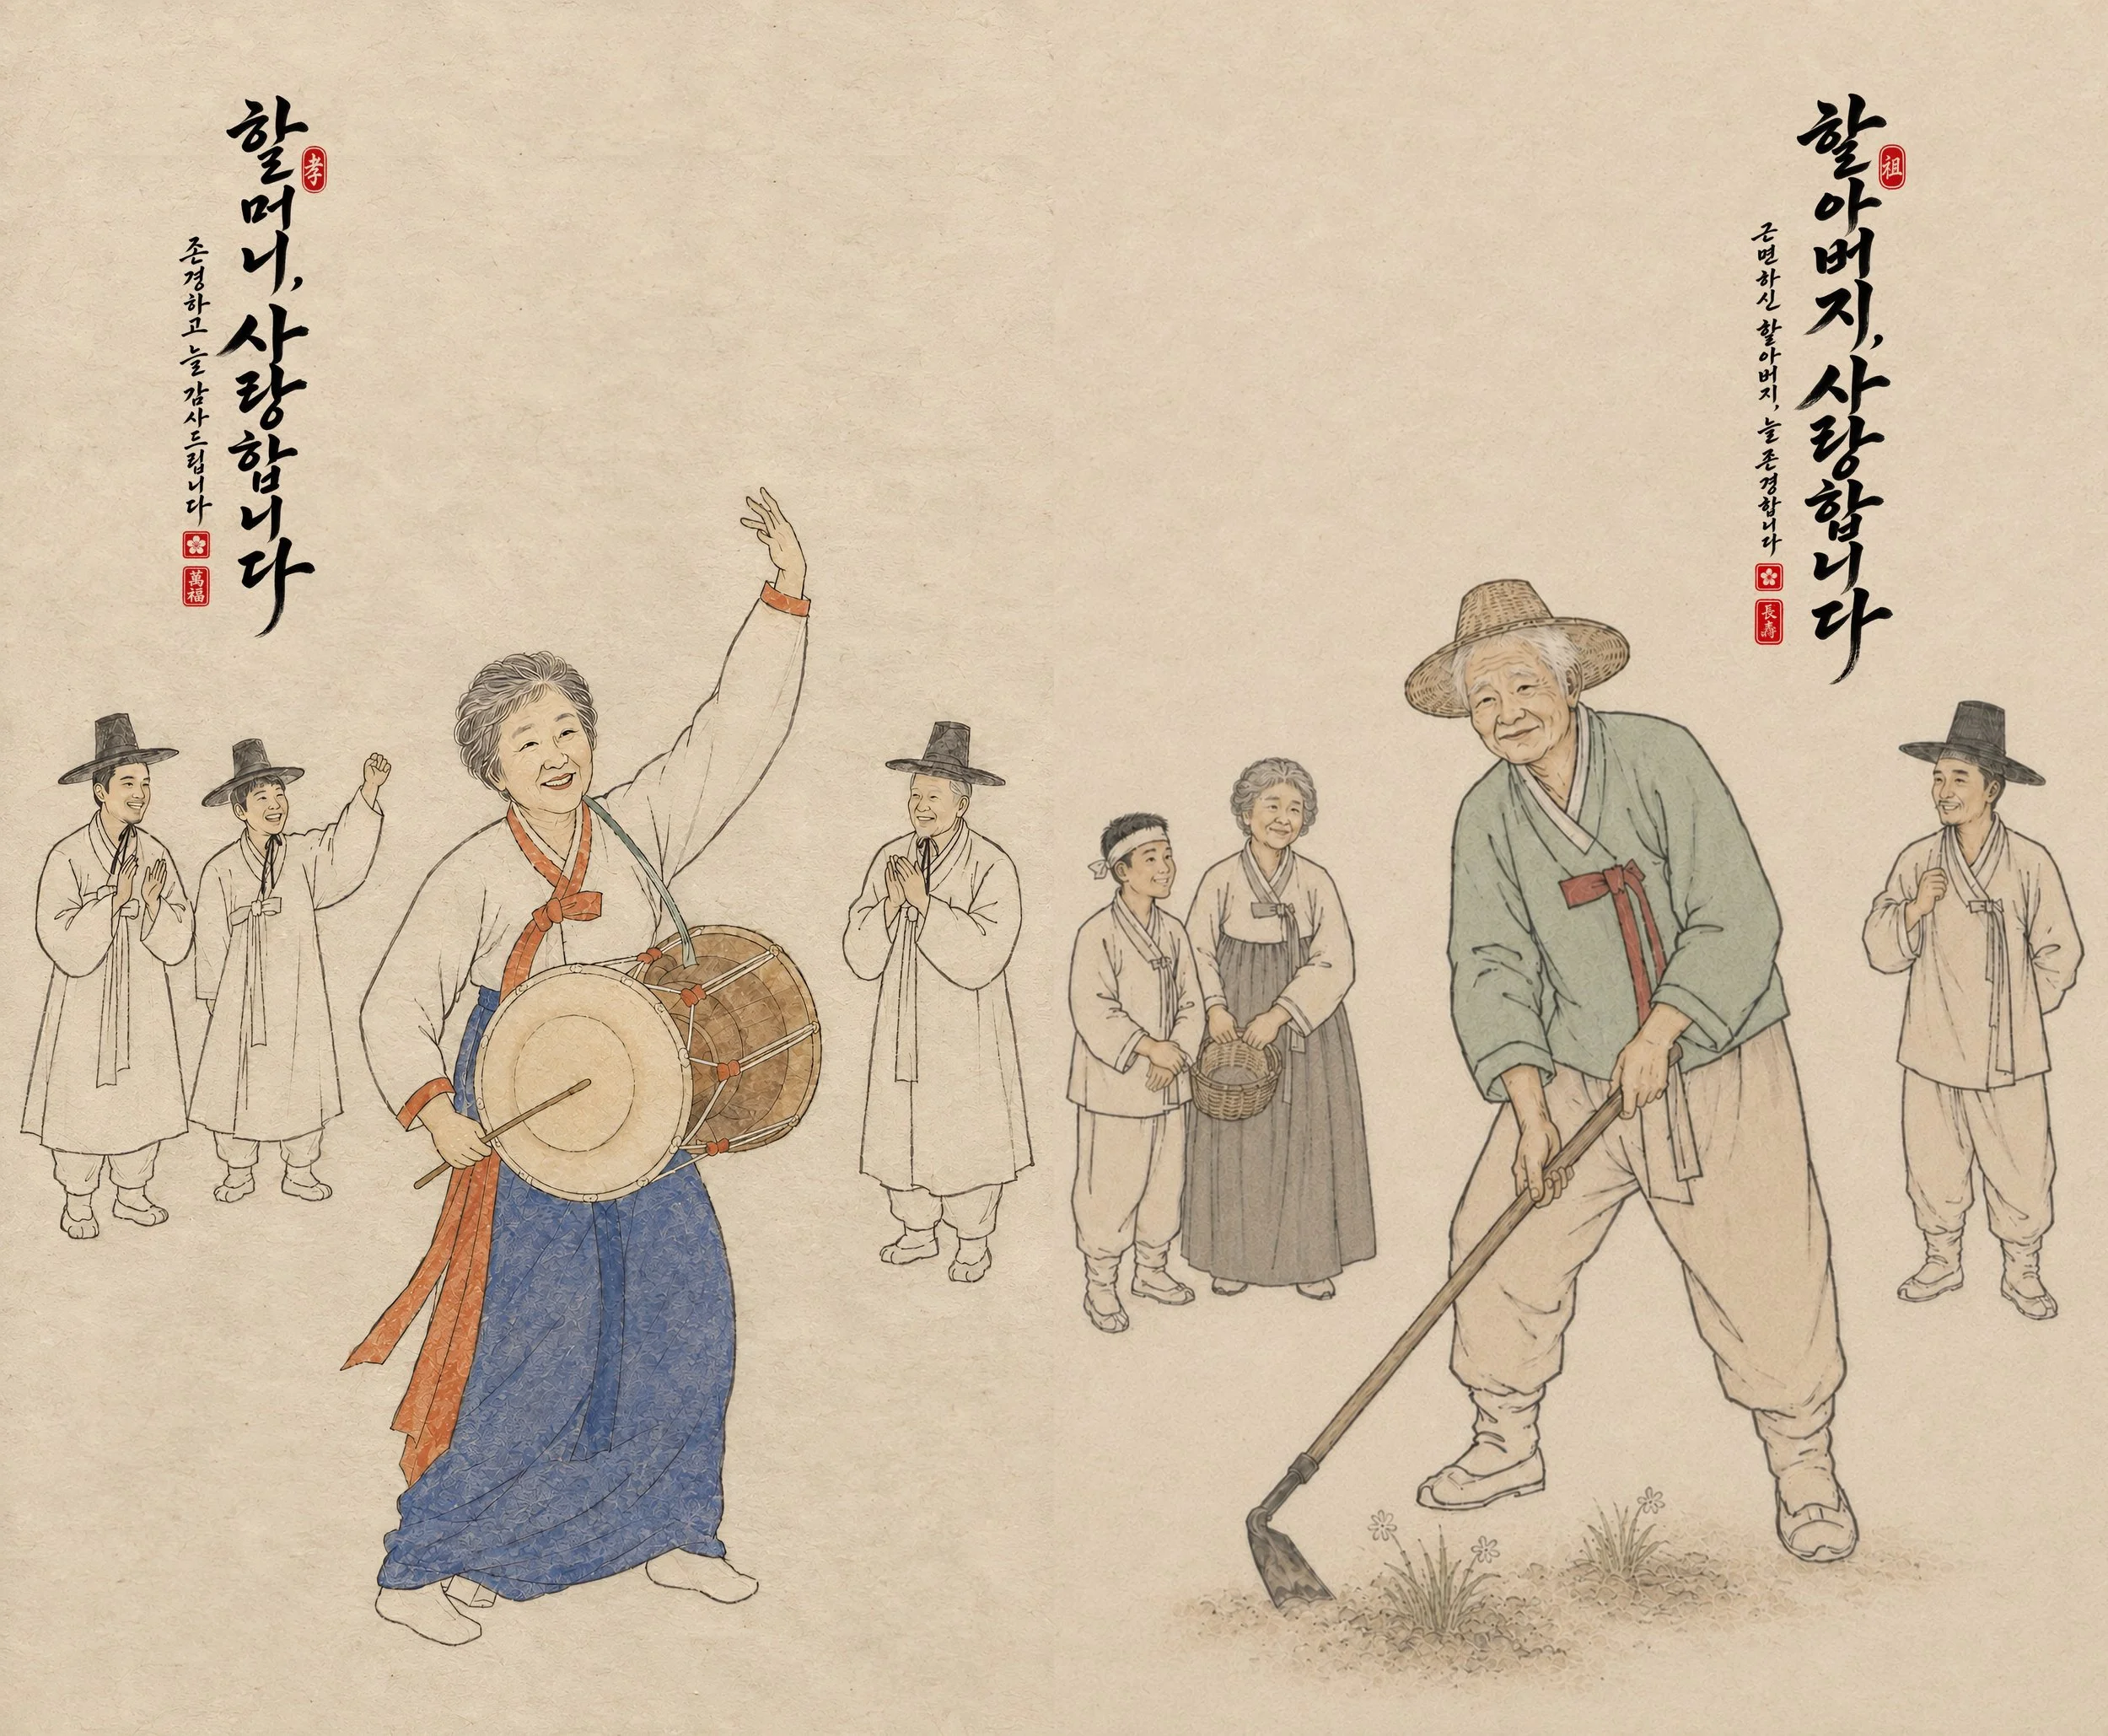 할머니, 사랑합니다
孝
존경하고 늘 감사드립니다
萬福
할아버지, 사랑합니다
祖
근면하신 할아버지, 늘 존경합니다
長壽